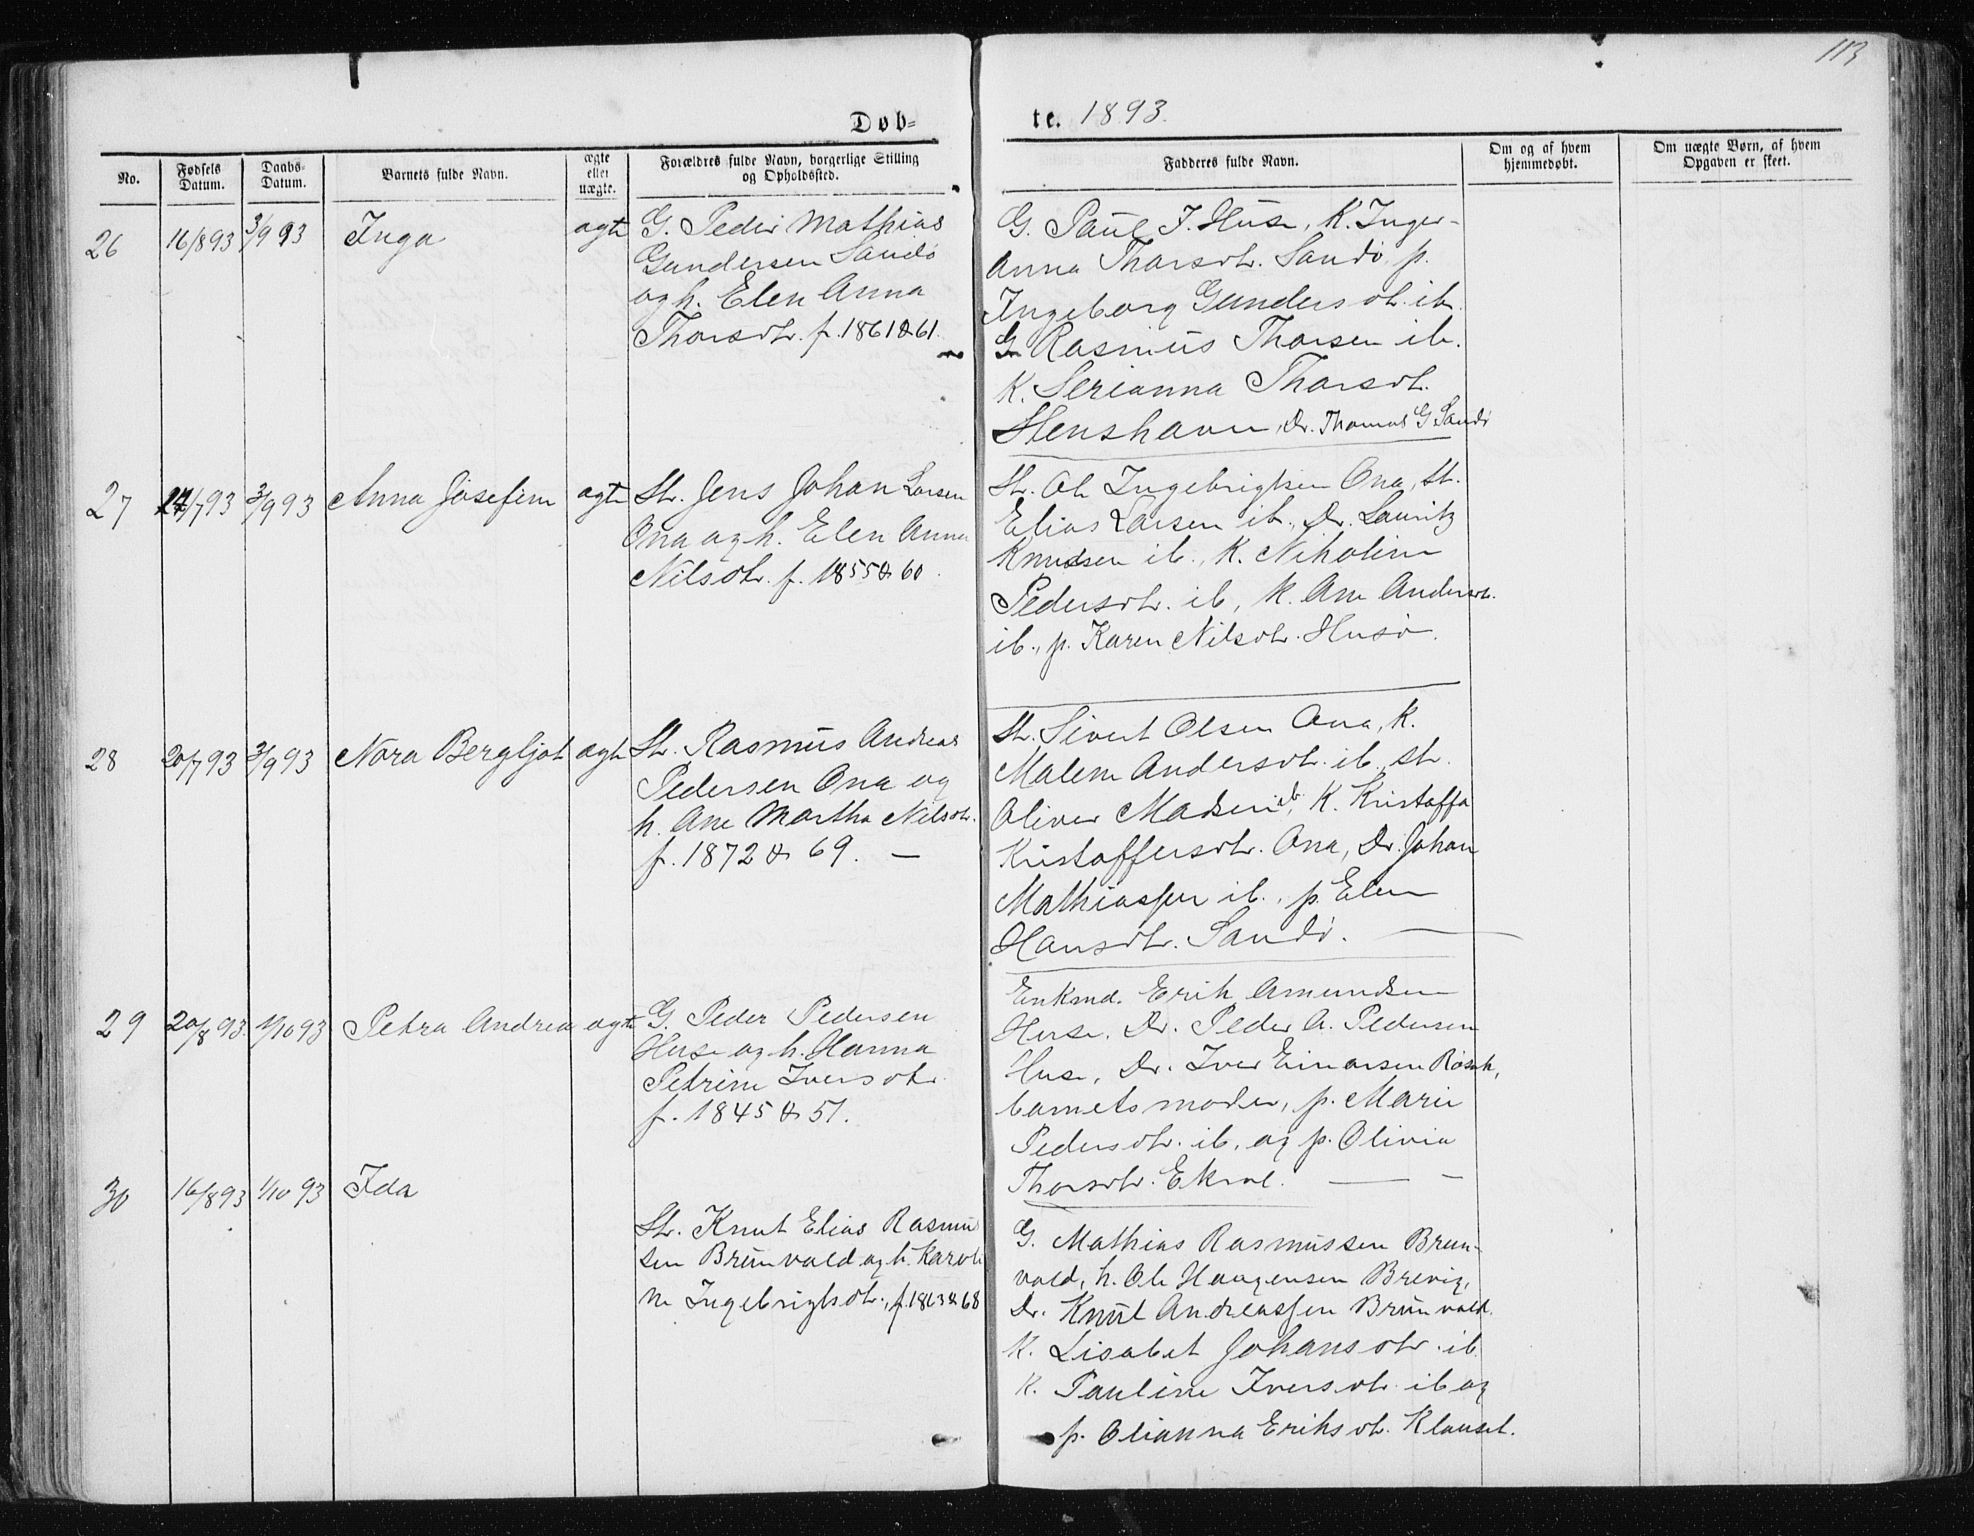 113
Døb-
te. 1893.
No.
Fødsels Datum.
Daabs-Datum.
Barnets fulde Navn.
ægte eller uægte.
Forældres fulde Navn, borgerlige Stilling og Opholdssted.
Fadderes fulde Navn.
Om og af hvem hjemmedøbt.
Om uægte Børn, af hvem Opgaven er skeet.
26 16/8 93 3/9 93 Inga ægte
G. Peder Mathias
Gundersen Sandø
og h. Elen Anna
Thorsdtr. f. 1861 & 61.
G. Paul J. Huse, K. Inger-
anna Thorsdtr. Sandø, p.
Ingeborg Gundersdtr. ib.
G Rasmus Thorsen ib.
K. Serianna Thorsdtr.
Stenshavn, Dr. Thomas G. Sandø
27 /7 93 3/9 93 Anna Josefine ægte
St. Jens Johan Larsen
Ona og h. Elen Anna
Nilsdtr. f. 1855 & 60.
St. Ole Ingebrigtsen Ona, St.
Elias Larsen ib., Dr. Lauritz
Knudsen ib., K. Nikoline
Pedersdtr. ib, K. Ane Andersdtr.
ib., p. Karen Nilsdtr. Husø.
28 20/7 93 3/9 93 Nora Bergljot ægte
St. Rasmus Andreas
Pedersen Ona og
h. Ane Martha Nilsdtr.
f. 1872 & 69. —
St. Sivert Olsen Ona, K.
Malene Andersdtr. ib. St.
Oliver Madsen ib, K. Kristoffa
Kristoffersdtr. Ona, Dr. Johan
Mathiassen ib., p. Elen
Hansdtr. Sandø. —
29 20/8 93. 1/10 93 Petra Andrea ægte
G. Peder Pedersen
Huse og h. Hanna
Petrine Iversdtr.
f. 1845 & 51.
Enkmd. Erik Amundsen
Huse. Dr. Peder A. Pedersen
Huse, Dr. Iver Einarsen Røsok,
barnets moder, p. Marie
Pedersdtr. ib. og p. Olivia
Thorsdtr. Ekrol. — —
30 16/8 93 1/10 93 Ida
St. Knut Elias Rasmus
sen Brunvold og h. Karoli
ne Ingebrigtsdtr., f. 1863 & 68
G. Mathias Rasmussen Brun-
vold, h. Ole Haagensen Brevig,
Dr. Knut Andreassen Brunvold.
K. Lisabet Johansdtr. ib.
K. Pauline Iversdtr. ib og
p. Olianna Eriksdtr. Klauset.